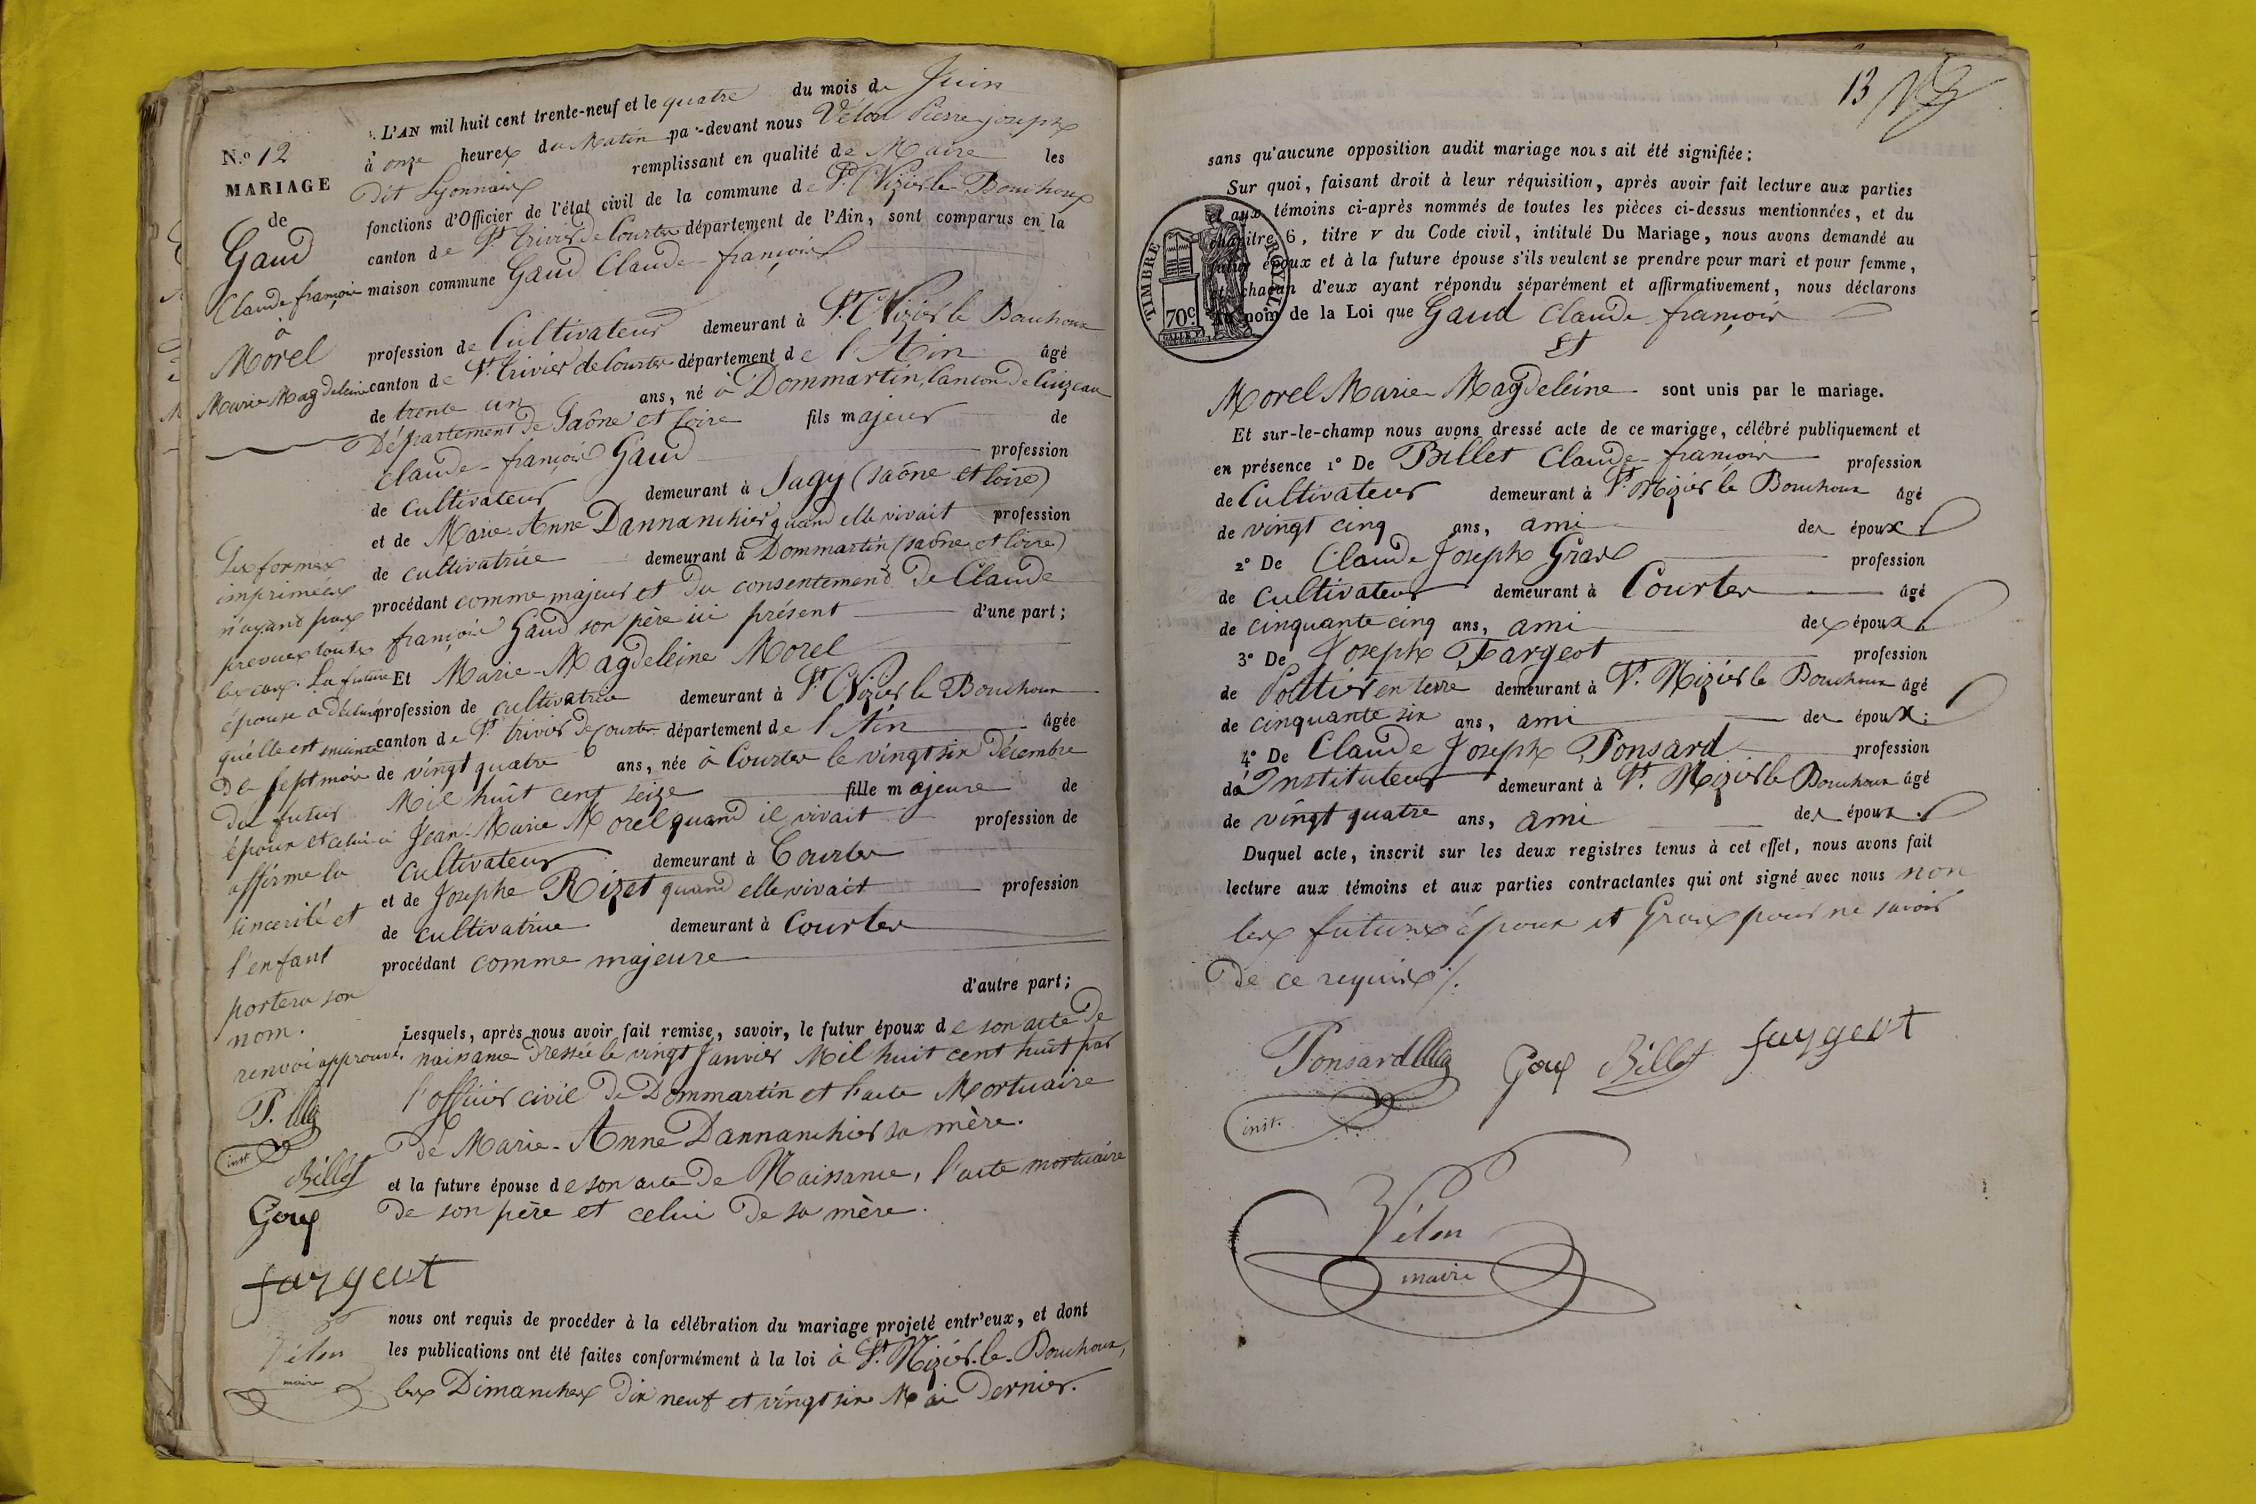 L'AN mil huit cent trente-neuf et le quatre du mois de Juin
N.º 12
à onze heures du Matin par-devant nous Vélon Pierre joseph
MARIAGE
dit Lyonnais remplissant en qualité de Maire les
de
fonctions d'Officier de l'état civil de la commune de St Nizier le Bouchoux
Gaud
canton de St trivier de Courtes département de l'Ain, sont comparus en la
Claude françois
maison commune Gaud Claude-françois
à
Morel
profession de Cultivateur demeurant à St Nizier le Bouchoux
Marie Magdeleine
canton de St trivier de Courtes département de l'Ain âgé
de trente un ans, né à Dommartin, Canton de Cuizeau
Département de Saône et Loire fils majeur de
Claude-françois Gaud profession
de cultivateur demeurant à Sagy (saône et loire)
et de Marie-Anne Dannanchier quand elle vivait profession
de cultivatrice demeurant à Dommartin (saône et loire)
procédant comme majeur et du consentement de Claude
françois Gaud son père ici présent d'une part;
Et Marie-Magdeleine Morel
profession de cultivatrice demeurant à St Nizier le Bouchoux
canton de St trivier de Courtes département de l'Ain âgée
de vingt quatre ans, née à Courtes le vingt six décembre
Mil huit cent seize fille majeure de
Jean-Marie Morel quand il vivait profession de
cultivateur demeurant à Courtes
et de Josephe Rizet quand elle vivait profession
de cultivatrice demeurant à Courtes
procédant comme majeure
d'autre part;
Les formes
imprimées
n'ayant pas
prevues toutes
les cas. La future
épouse a déclaré
qu'elle est enceinte
de sept mois
du futur
époux et celui-ci
affirme la
sincerité et
l'enfant
portera son
nom.
renvoi approuvé.
P.
inst.
Billet
Goux
fargeot
Vélon
maire
Lesquels, après nous avoir fait remise, savoir, le futur époux de son acte de
naissance dressée le vingt Janvier Mil huit cent huit par
l'officier civil de Dommartin et l'acte Mortuaire
de Marie-Anne Dannanchier sa mère.
et la future épouse de son acte de Naissance, l'acte mortuaire
de son père et celui de sa mère.
nous ont requis de procéder à la célébration du mariage projeté entr'eux, et dont
les publications ont été faites conformément à la loi à St. Nizier-le-Bouchoux,
les Dimanches dix neuf et vingt six Mai Dernier.
13
sans qu'aucune opposition audit mariage nous ait été signifiée;
Sur quoi, faisant droit à leur réquisition, après avoir fait lecture aux parties
et aux témoins ci-après nommés de toutes les pièces ci-dessus mentionnées, et du
chapitre 6, titre V du Code civil, intitulé Du Mariage, nous avons demandé au
futur époux et à la future épouse s'ils veulent se prendre pour mari et pour femme,
et chacun d'eux ayant répondu séparément et affirmativement, nous déclarons
au nom de la Loi que Gaud Claude-françois
TIMBRE ROYAL
70c
Et
Morel Marie-Magdeleine sont unis par le mariage.
Et sur-le-champ nous avons dressé acte de ce mariage, célébré publiquement et
en présence 1º De Billet Claude-françois profession
de Cultivateur demeurant à St. Nizier le Bouchoux âgé
de vingt cinq ans, ami des époux.
2º De Claude Joseph Grax profession
de cultivateur demeurant à Courtes âgé
de cinquante cinq ans, ami des époux.
3º De Joseph Fargeot profession
de Pottier en terre demeurant à St. Nizier le Bouchoux âgé
de cinquante six ans, ami des époux;
4º De Claude Joseph Ponsard profession
d'Instituteur demeurant à St. Nizier le Bouchoux âgé
de vingt quatre ans, ami des époux.
Duquel acte, inscrit sur les deux registres tenus à cet effet, nous avons fait
lecture aux témoins et aux parties contractantes qui ont signé avec nous non
les futurs époux et Grax pour ne savoir
de ce requis./.
Ponsard Goux Billet fargeot
inst.
Vélon
maire